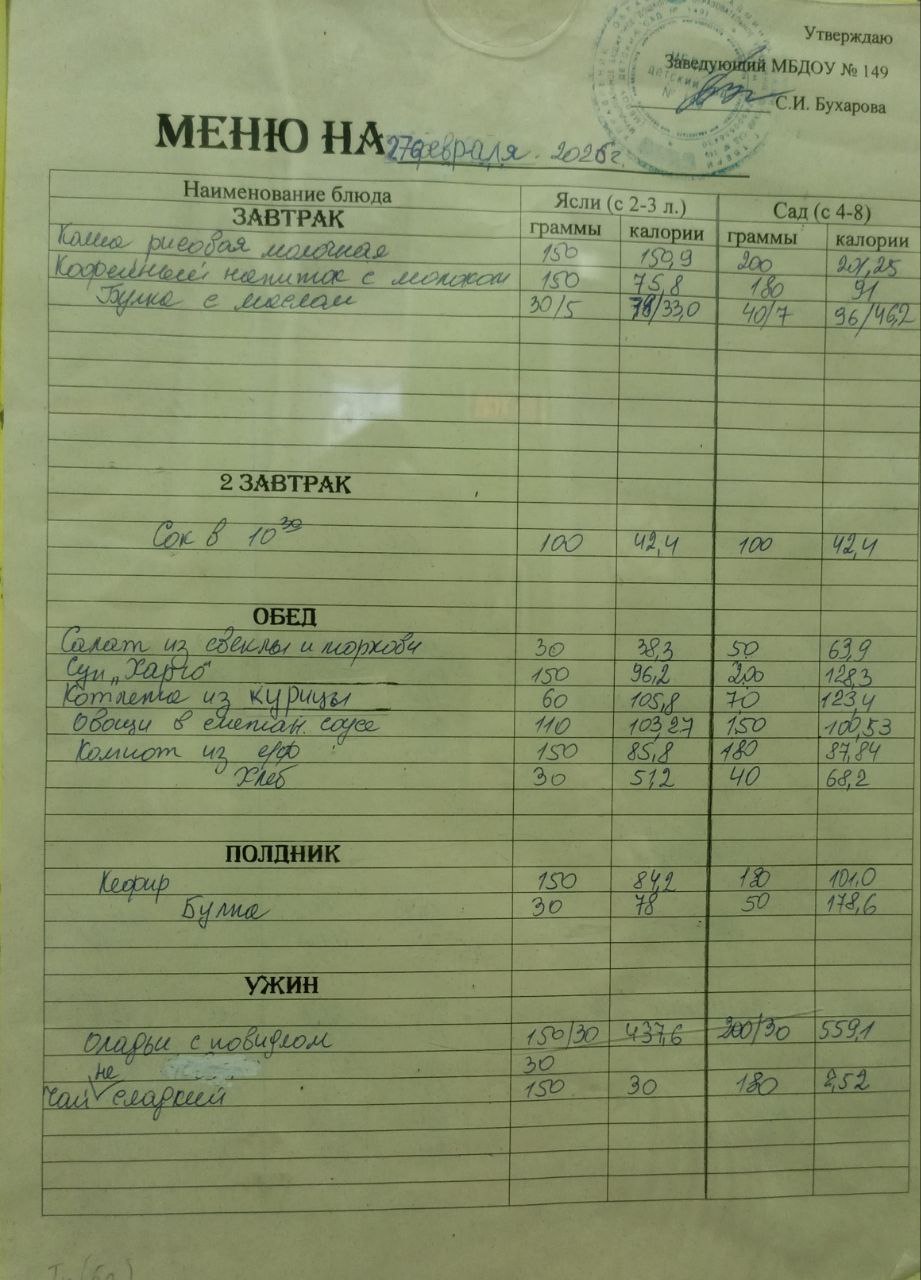 Утверждаю
Заведующий МБДОУ № 149
С.И. Бухарова
МЕНЮ НА 27 февраля. 2026 г.
Наименование блюда Ясли (с 2-3 л.) Сад (с 4-8)
ЗАВТРАК граммы калории граммы калории
Каша рисовая молочная 150 150,9 200 201,25
Кофейный напиток с молоком 150 75,8 180 91
Булка с маслом 30/5 78/33,0 40/7 96/46,2
2 ЗАВТРАК
Сок в 10 30 100 42,4 100 42,4
ОБЕД
Салат из свеклы и моркови 30 38,3 50 63,9
Суп „Харчо" 150 96,2 200 128,3
Котлета из курицы 60 105,8 70 123,4
Овощи в сметан. соусе 110 103,27 150 100,53
Компот из с/ф 150 85,8 180 87,84
Хлеб 30 51,2 40 68,2
ПОЛДНИК
Кефир 150 84,2 180 101,0
Булка 30 78 50 178,6
УЖИН
Оладьи с повидлом 150/30 437,6 200/30 559,1
30
Чай не сладкий 150 30 180 2,52